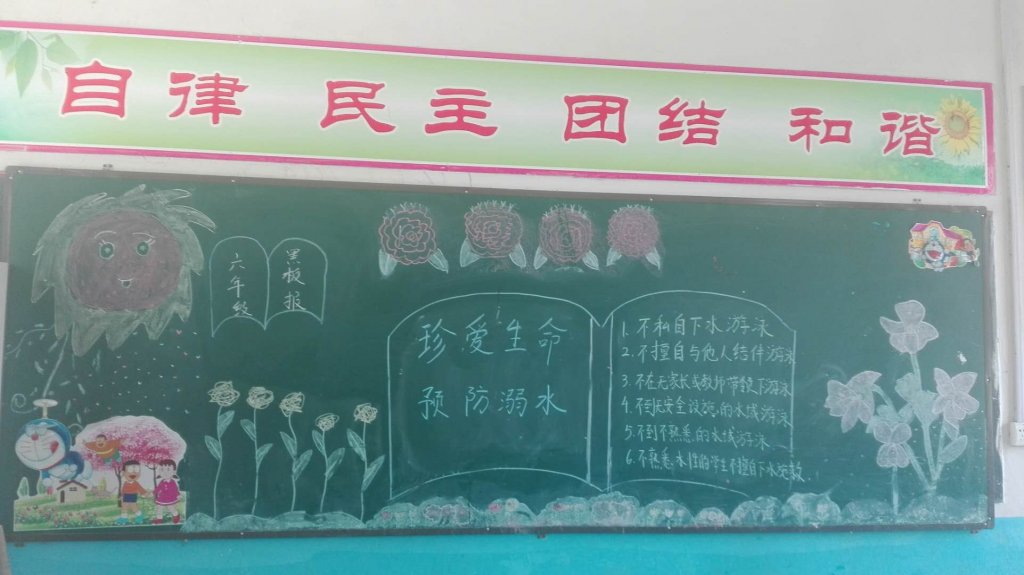 自律 民主 团结 和谐
六年级
黑板报
珍爱生命
预防溺水
1.不私自下水游泳
2.不擅自与他人结伴游泳
3.不在无家长或教师带领下游泳
4.不到无安全设施的水域游泳
5.不到不熟悉的水域游泳
6.不熟悉水性的学生不擅自下水施救.